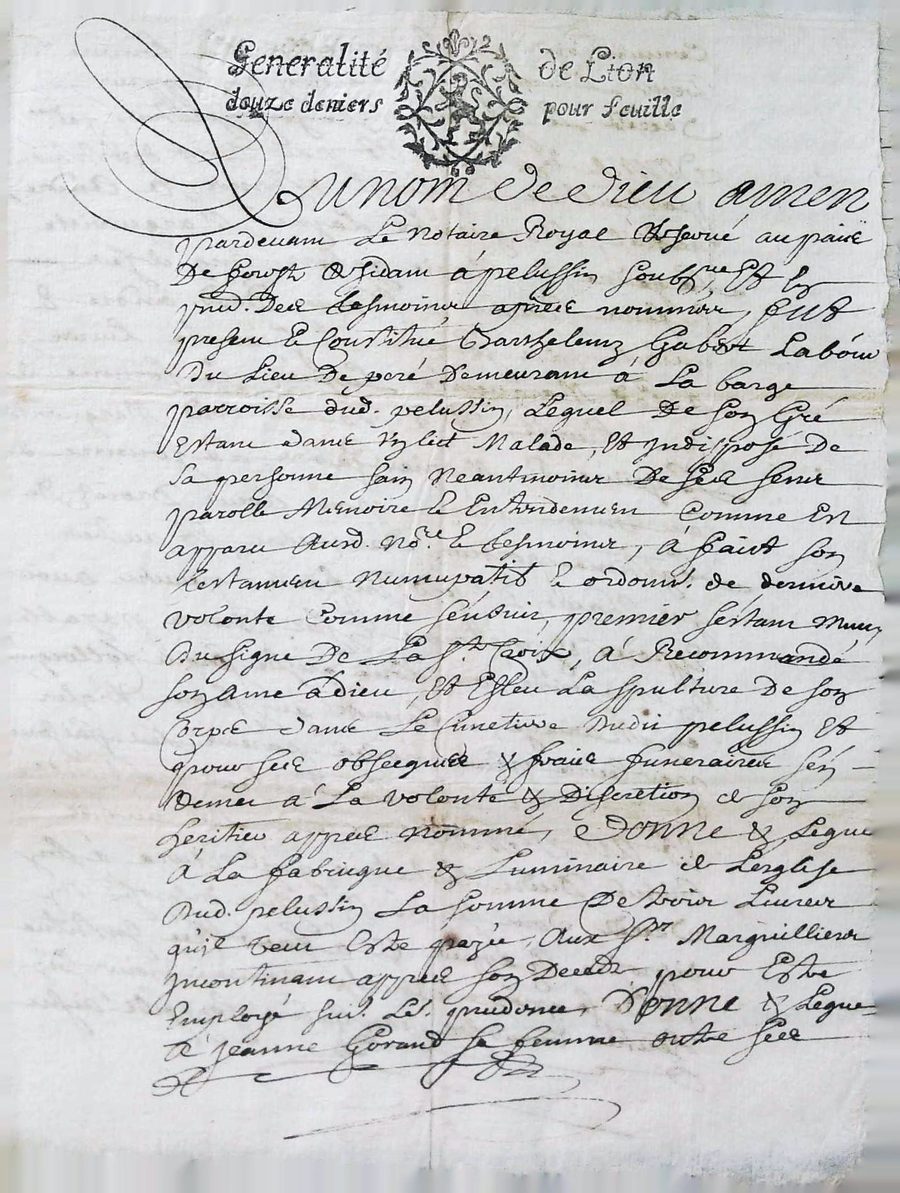 Generalité de Lion
douze deniers pour feuille
Au nom de dieu amen
pardevant Le Notaire Royal Reservé au païs
De forest Residant à pelussin soubzne, Et En
pnce. Des tesmoins après nommés, fut
present & Constitué Barthelemy Gabert Labour
Du Lieu De peré Demeurant à La barge
parroisse dud. pelussin, Lequel De son Gré
Estant dans un lict Malade, Et Indisposé De
Sa personne sain Neantmoins De ses sens
parolle Memoire & Entendement Comme En
apparu Ausd. Nore. & tesmoins, à faict son
testament Nuncupatif & ordonce. de derniere
volonté Comme s'ensuit, premier s'estant Muny
Du signe De La Ste. Croix, à Recommandé
son ame à dieu, Et Esleu La Sepulture De son
Corps dans Le Cimetiere Dudit pelussin Et
pour ses obseques & frais funeraires s'en
Remet à La volonté & Discretion de son
heritier appres Nommé, Donne & Legue
à La fabrique & Luminaire de L'eglise
Dud. pelussin La somme De trois Livres
qu'il veut Estre payée, Aux Srs. Marguilliers
Incontinant appres son Deces pour Estre
Employé suiv. Les. prudence, Donne & Legue
à Jeanne Gorand sa femme outre ses